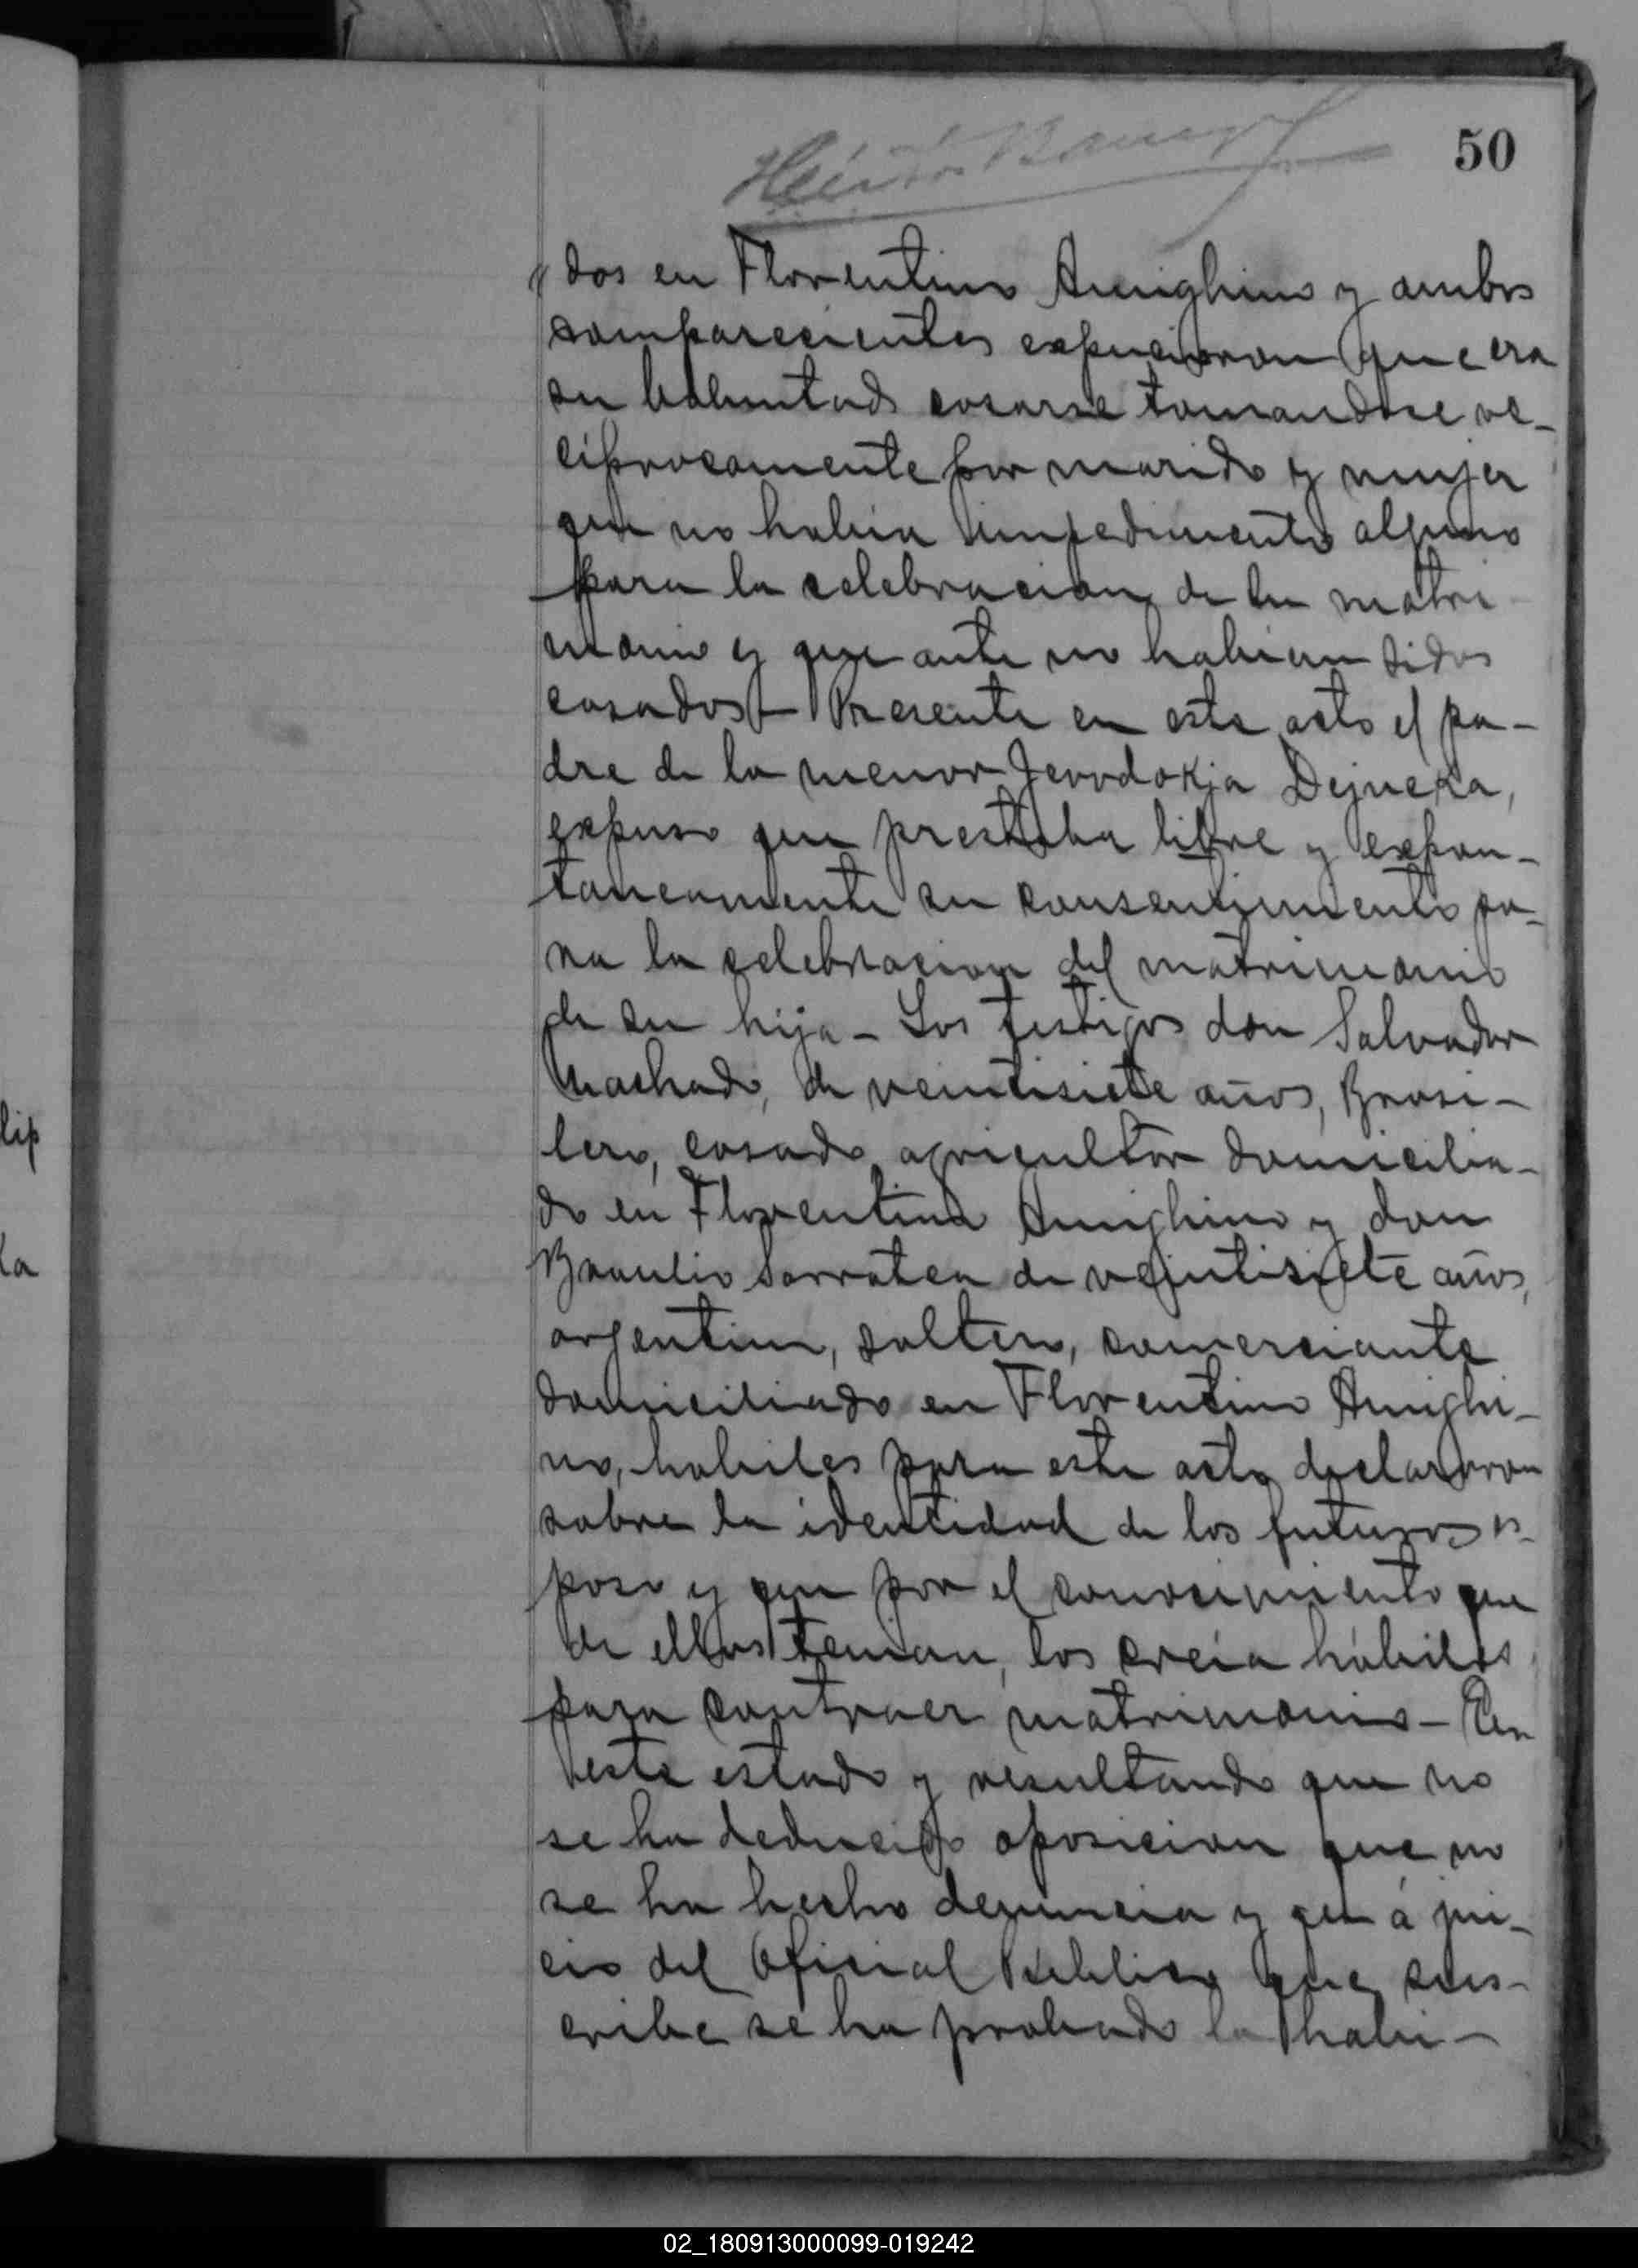 50
Héctor
"dos en Florentino Ameghino y ambos
comparecientes expucieron que era
su boluntad casarse tomandose re-
ciprocamente por marido y mujer
que no habia impedimento alguno
para la celebracion de su matri
monio y que ante no habian sidos
casados - Presente en este acto el pa-
dre de la menor Jevvdokja Dejneka,
expuso que prestaba libre y expon-
taneamente su consentimiento pa-
ra la celebracion del matrimonio
de su hija - Los testigos don Salvador
Machado, de veintisiete años, Brasi-
lero, casado, agricultor domicilia-
do en Florentino Ameghino y don
Braulio Sarratea de veintisiete años,
argentino, soltero, comerciante
domiciliado en Florentino Ameghi-
no, habiles para este acto declararon
sobre la identidad de los futuros es-
poso y que por el conocimiento que
de ellos tenian, los creia hábiles
para contraer matrimonio - En
este estado y resultando que no
se ha deducido oposicion que no
se ha hecho denuncia y que á jui-
cio del Oficial Público que sus-
cribe se ha probado la habi-
lip
ka
02_180913000099-019242